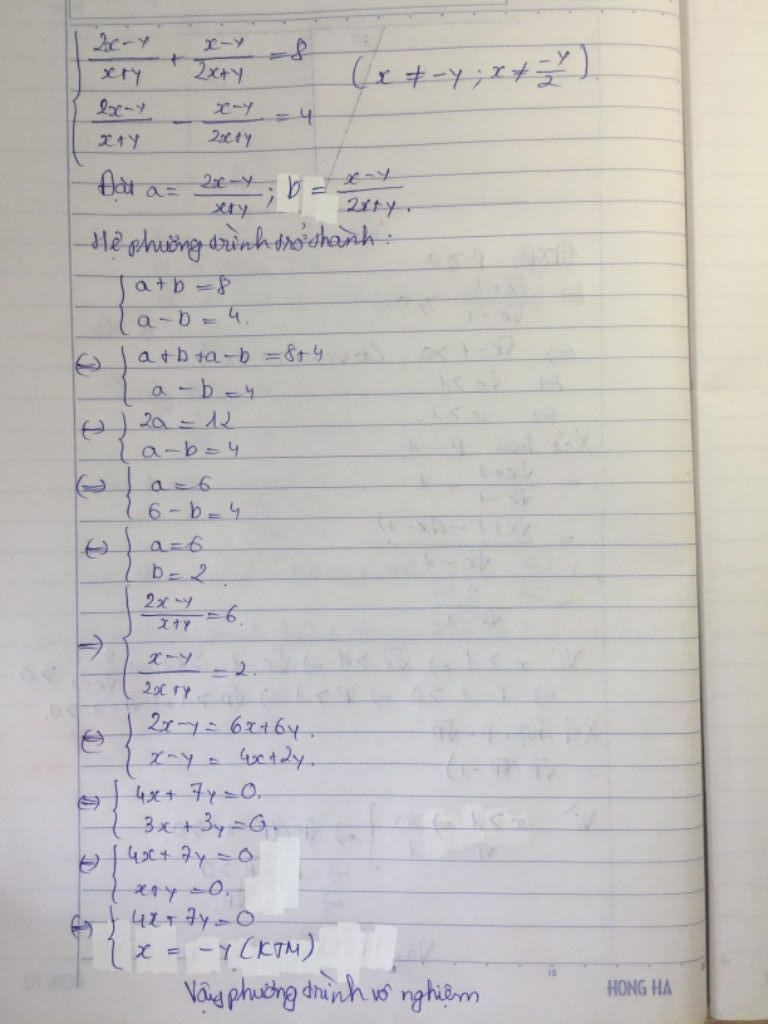 { (2x-y)/(x+y) + (x-y)/(2x+y) = 8 (x ≠ -y ; x ≠ -y/2).
{ (2x-y)/(x+y) - (x-y)/(2x+y) = 4
Đặt a = (2x-y)/(x+y) ; b = (x-y)/(2x+y).
Hệ phương trình trở thành :
{ a + b = 8
{ a - b = 4.
⇔ { a + b + a - b = 8 + 4
{ a - b = 4
⇔ { 2a = 12
{ a - b = 4
⇔ { a = 6
{ 6 - b = 4
⇔ { a = 6
{ b = 2
⇒ { (2x-y)/(x+y) = 6.
{ (x-y)/(2x+y) = 2.
⇔ { 2x - y = 6x + 6y.
{ x - y = 4x + 2y.
⇔ { 4x + 7y = 0.
{ 3x + 3y = 0.
⇔ { 4x + 7y = 0
{ x + y = 0.
⇔ { 4x + 7y = 0
{ x = -y (KTM)
Vậy phương trình vô nghiệm
15
HONG HA